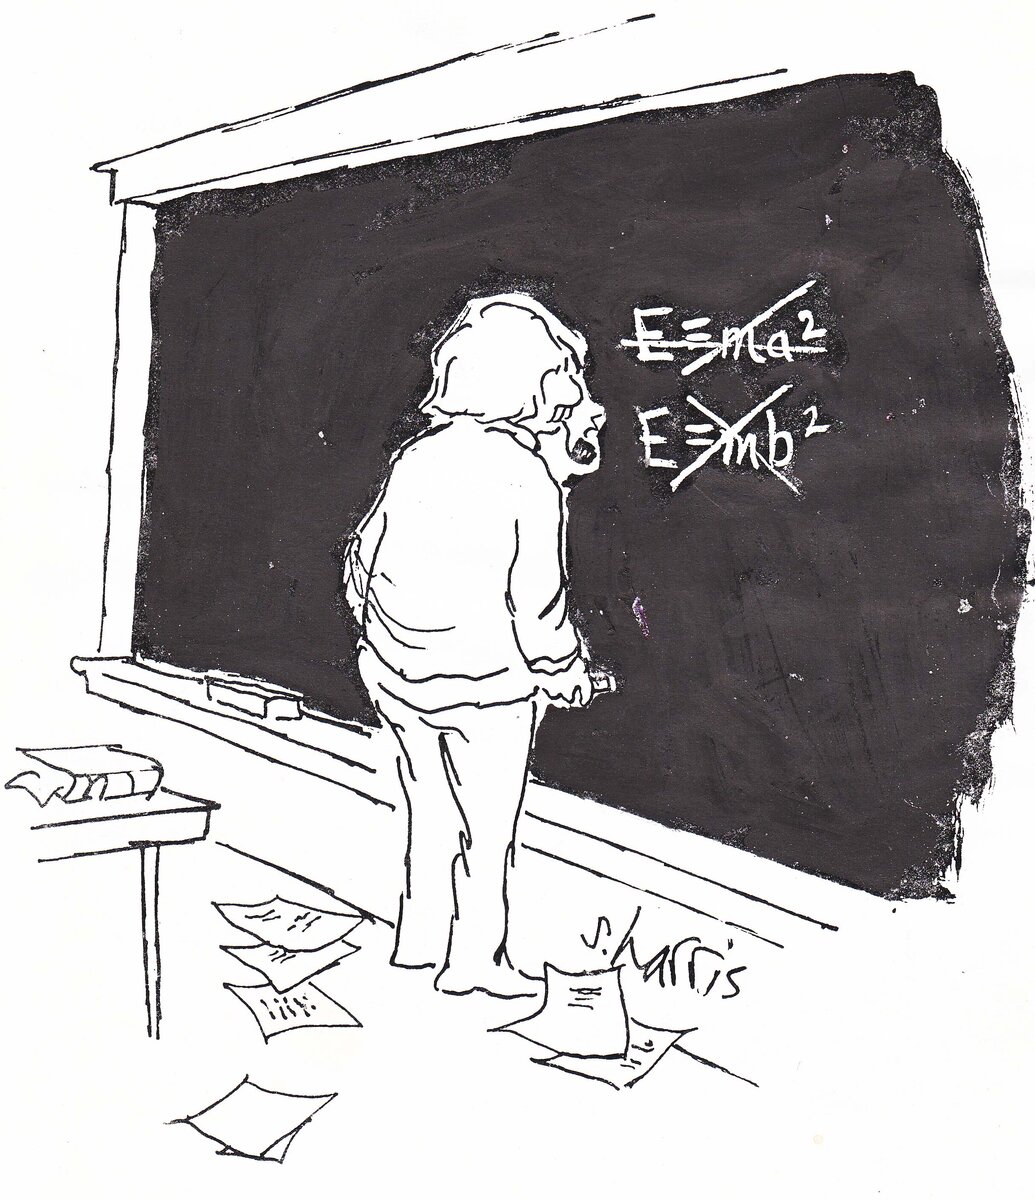 E=ma²
E=mb²
s.harris